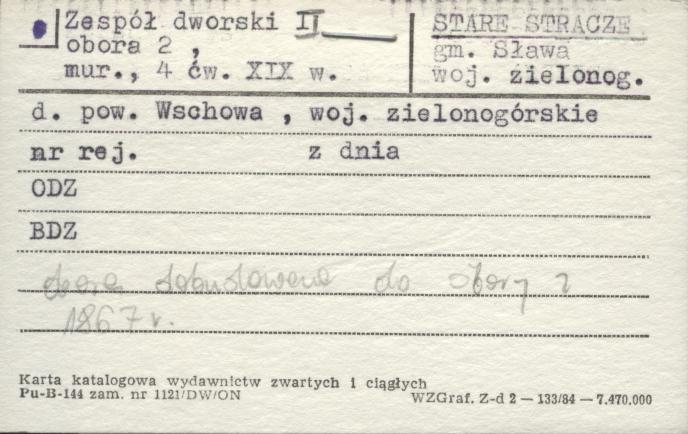 Zespół dworski II STARE STRACZE
obora 2 , gm. Sława
mur., 4 ćw. XIX w. woj. zielonog.
d. pow. Wschowa , woj. zielonogórskie
nr rej. z dnia
ODZ
BDZ
obora dobudowana do obory z
1867 r.
Karta katalogowa wydawnictw zwartych i ciągłych
Pu-B-144 zam. nr 1121/DW/ON WZGraf. Z-d 2 — 133/84 — 7.470.000